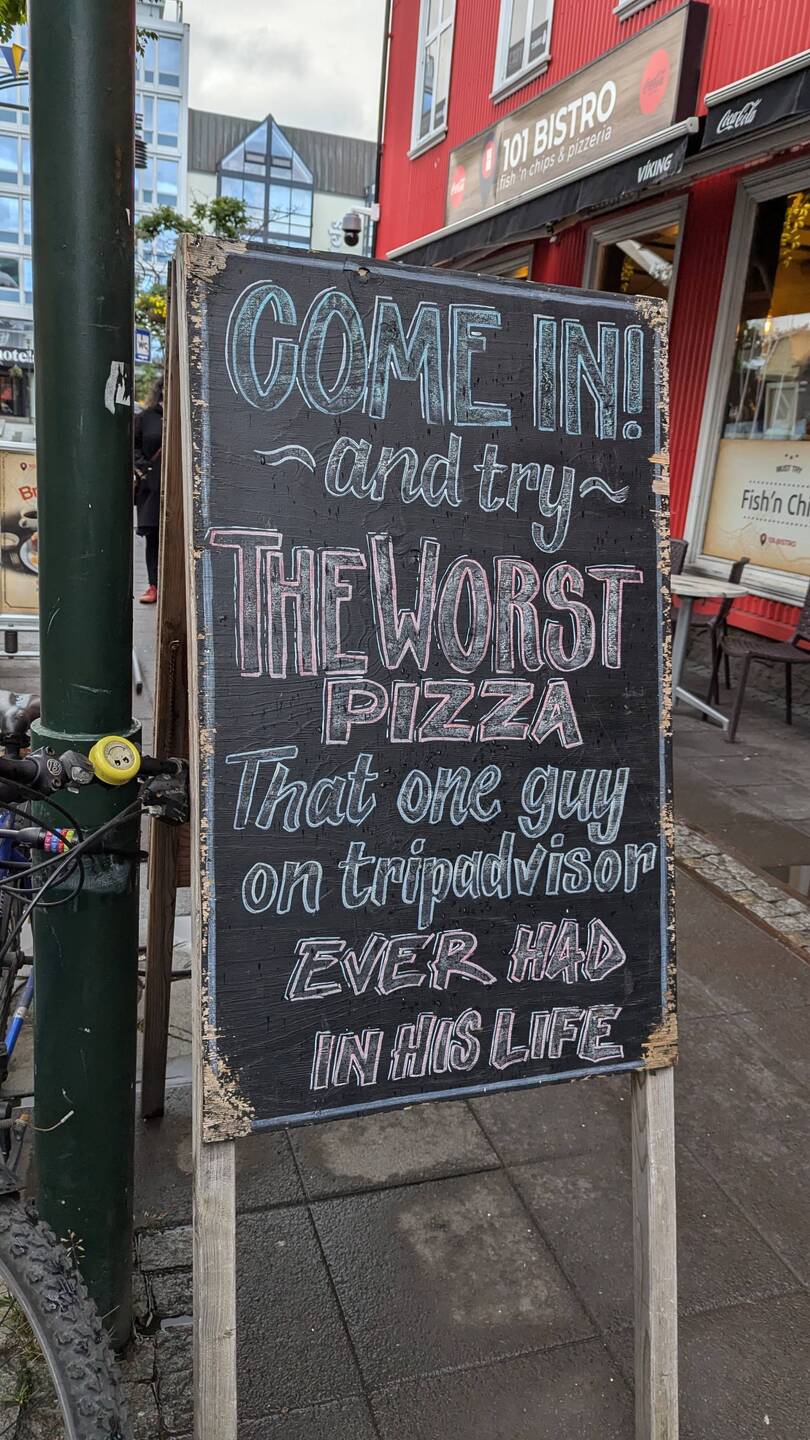 101 BISTRO
fish 'n chips & pizzeria
Coca-Cola
VÍKING
COME IN!
~and try~
THE WORST
PIZZA
That one guy
on tripadvisor
EVER HAD
IN HIS LIFE
MUST TRY
Fish'n Chi
101 BISTRO
WC